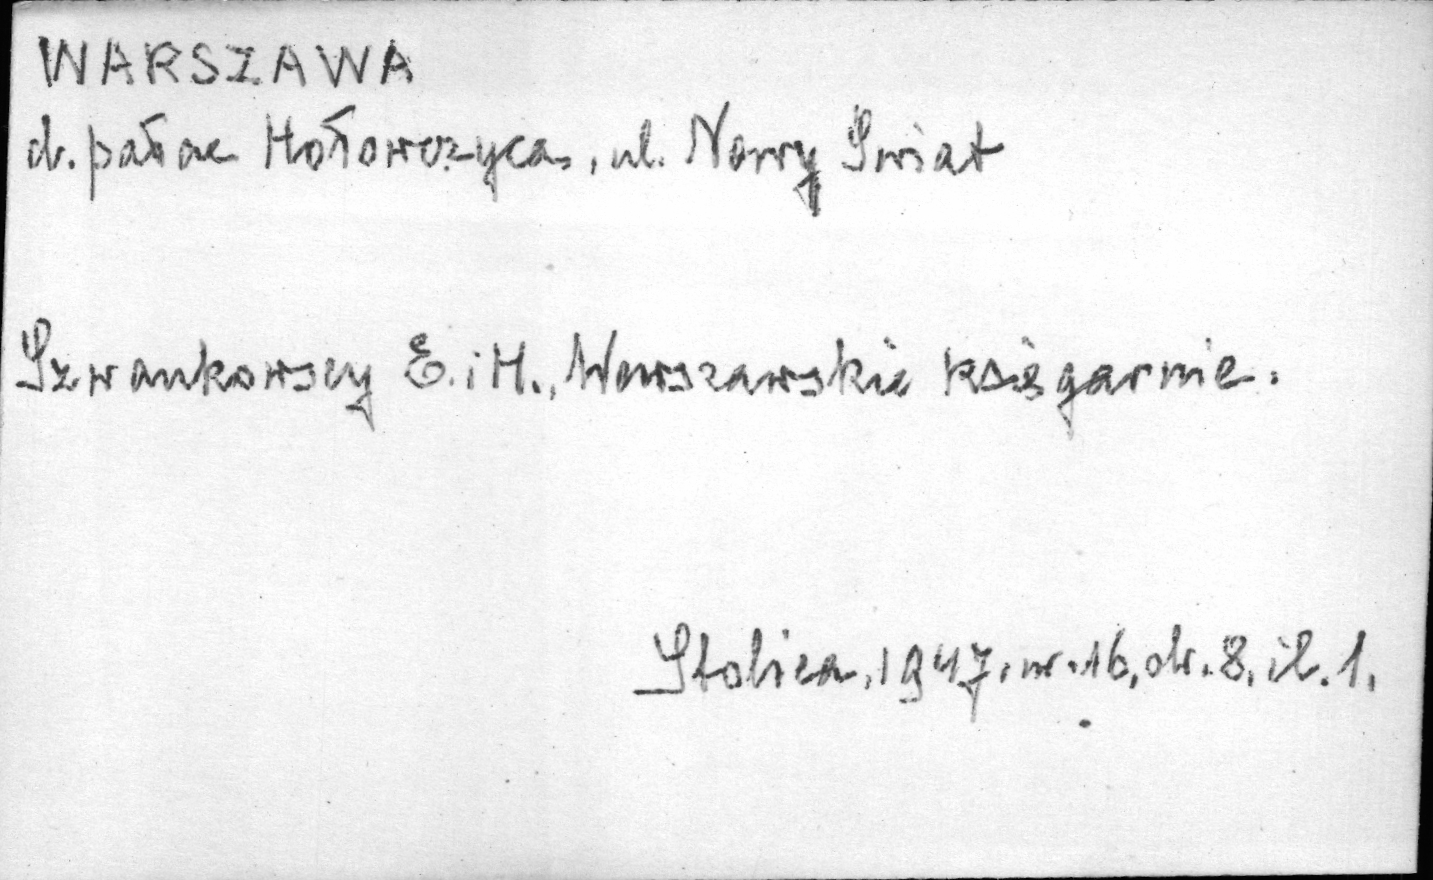 WARSZAWA
d. pałac Hołowczyca, ul. Nowy Świat
Szwankowscy E. i H., Warszawskie księgarnie.
Stolica, 1947, nr. 16, str. 8, il. 1.